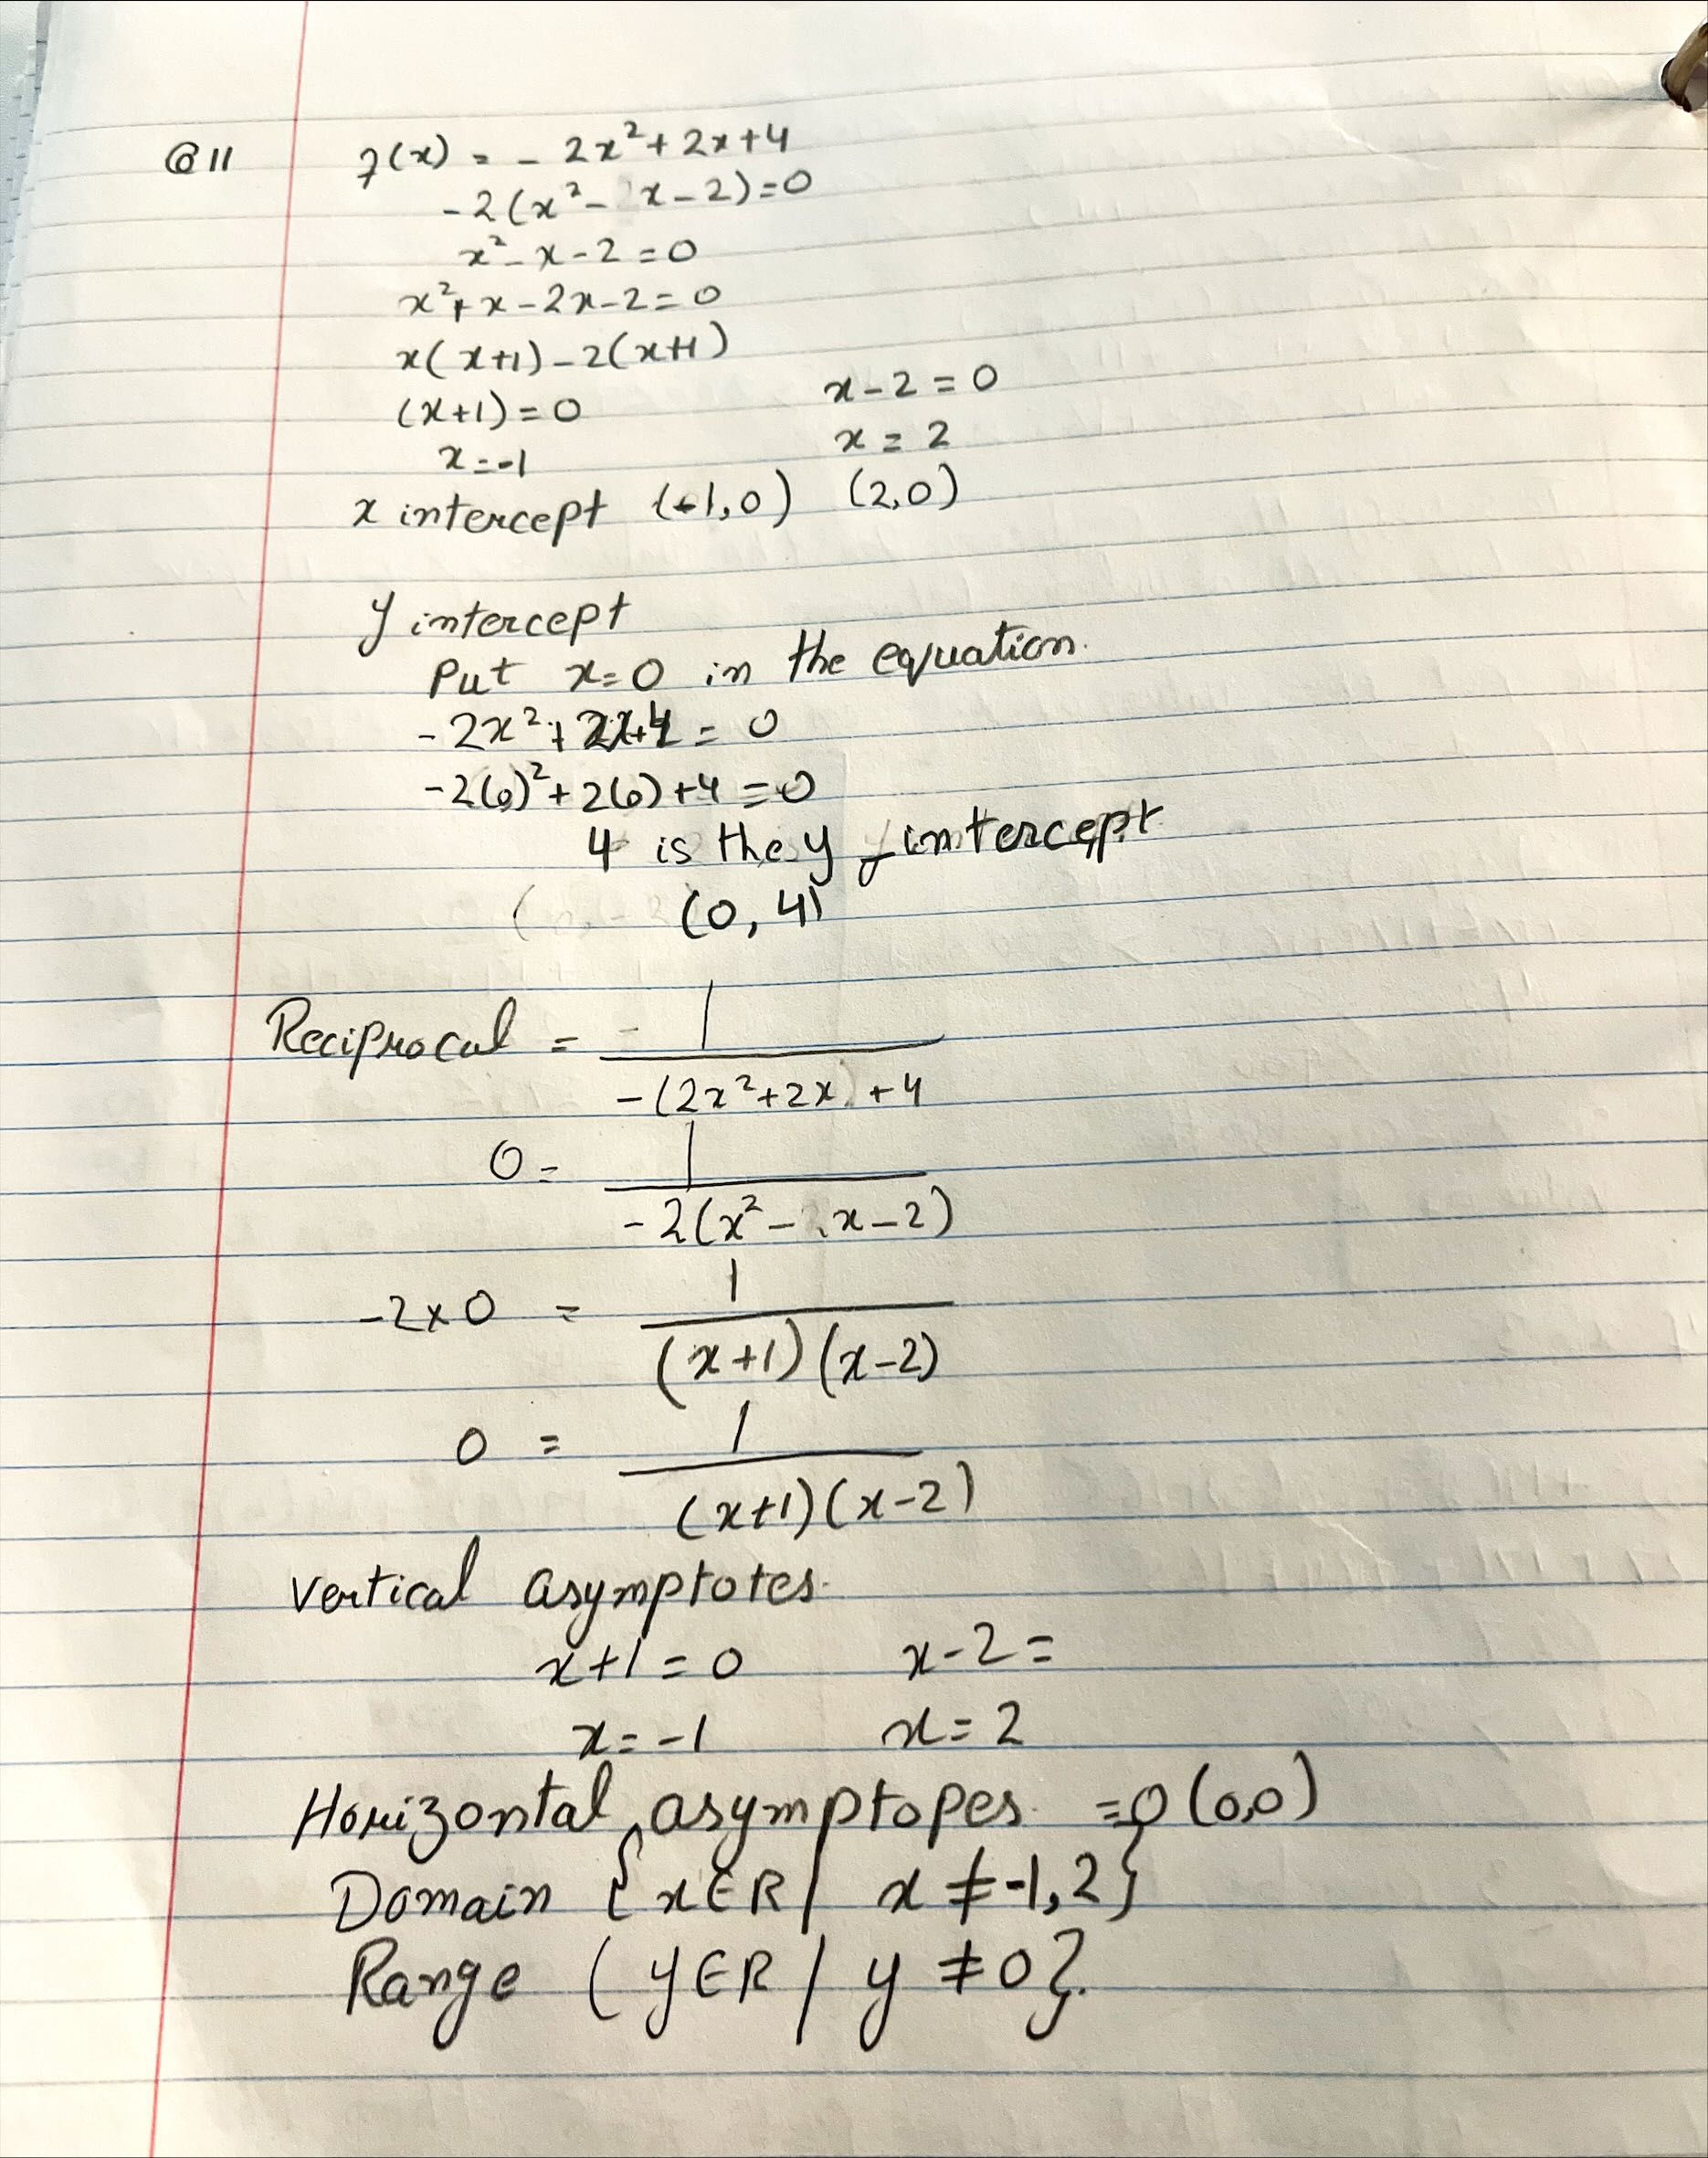 Q 11 f(x) = - 2x²+2x+4
-2(x²- x-2)=0
x²-x-2=0
x²+x-2x-2=0
x(x+1)-2(x+1)
(x+1)=0 x-2=0
x=-1 x=2
x intercept (-1,0) (2,0)
y intercept
Put x=0 in the equation.
-2x²+2x+4=0
-2(0)²+2(0)+4=0
4 is the y intercept
(0,4)
Reciprocal = 1
-(2x²+2x)+4
0= 1
-2(x²- x-2)
-2x0 = 1
(x+1)(x-2)
0 = 1
(x+1)(x-2)
Vertical asymptotes.
x+1=0 x-2=
x=-1 x=2
Horizontal asymptopes =0(0,0)
Domain {x∈R/ x≠-1,2}
Range (y∈R/ y≠0}.